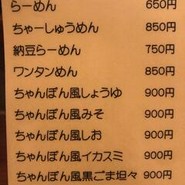 らーめん 650円
ちゃーしゅうめん 850円
納豆らーめん 750円
ワンタンめん 850円
ちゃんぽん風しょうゆ 900円
ちゃんぽん風みそ 900円
ちゃんぽん風しお 900円
ちゃんぽん風イカスミ 900円
ちゃんぽん風黒ごま坦々 900円